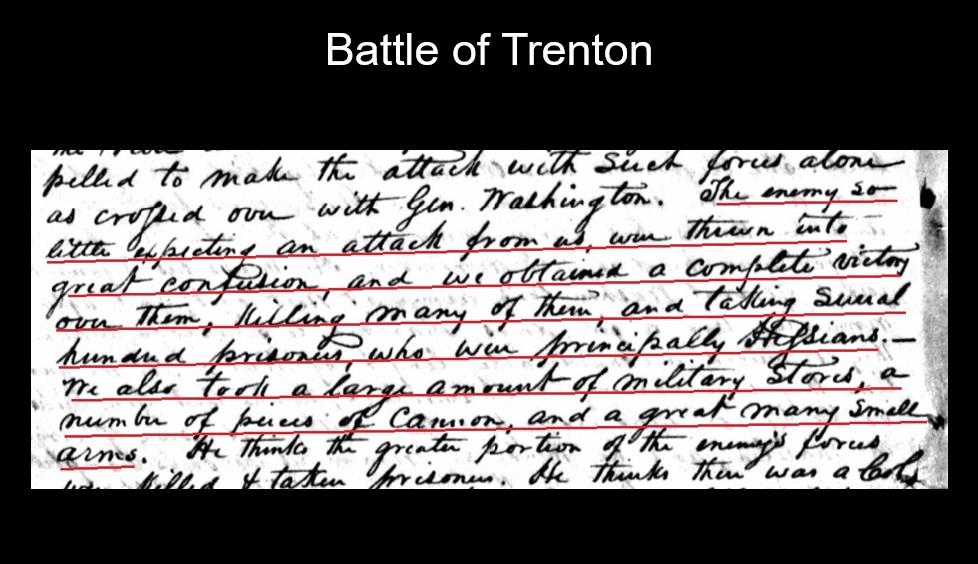 Battle of Trenton
pelled to make the attack with such forces alone
as crossed over with Gen. Washington. The enemy so
little expecting an attack from us, were thrown into
great confusion, and we obtained a complete victory
over them, killing many of them, and taking several
hundred prisoners, who were principally Hessians.—
We also took a large amount of military Stores, a
number of pieces of Cannon, and a great many small
arms. He thinks the greater portion of the enemy's forces
were killed & taken prisoners. He thinks there was a